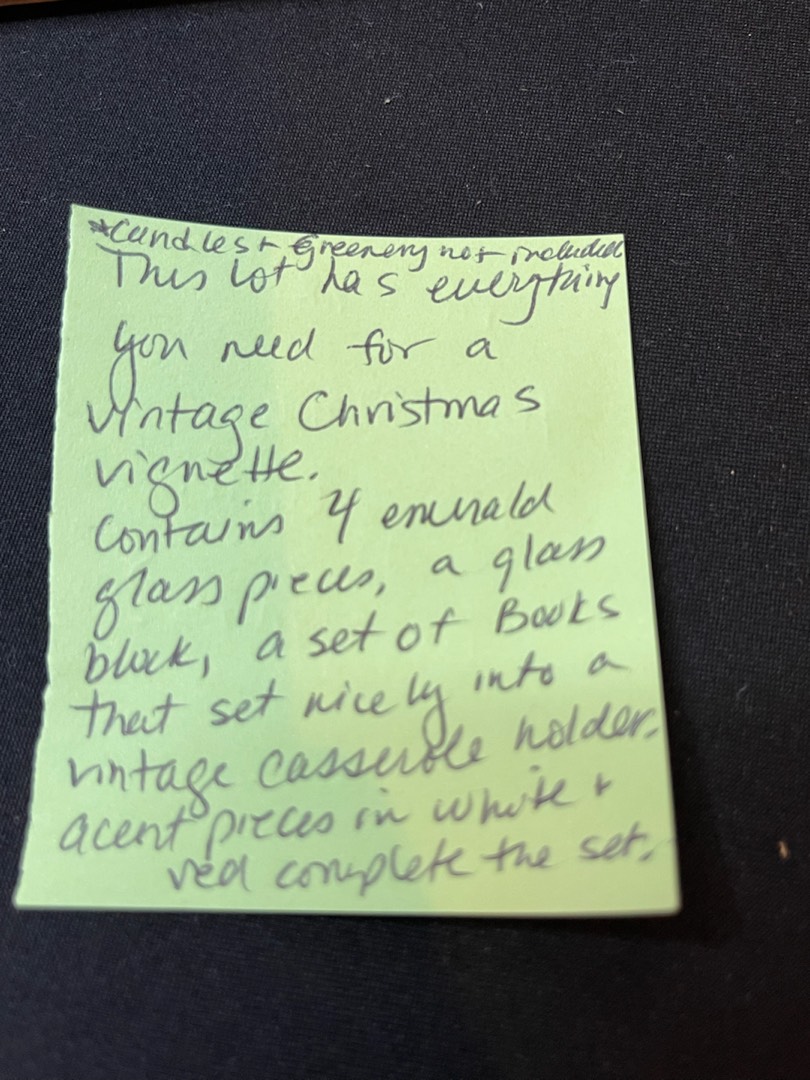 *Candles + Greenery not included
This lot has everything
you need for a
vintage Christmas
vignette.
Contains 4 emerald
glass pieces, a glass
block, a set of Books
that set nicely into a
vintage casserole holder.
acent pieces in white +
red complete the set.